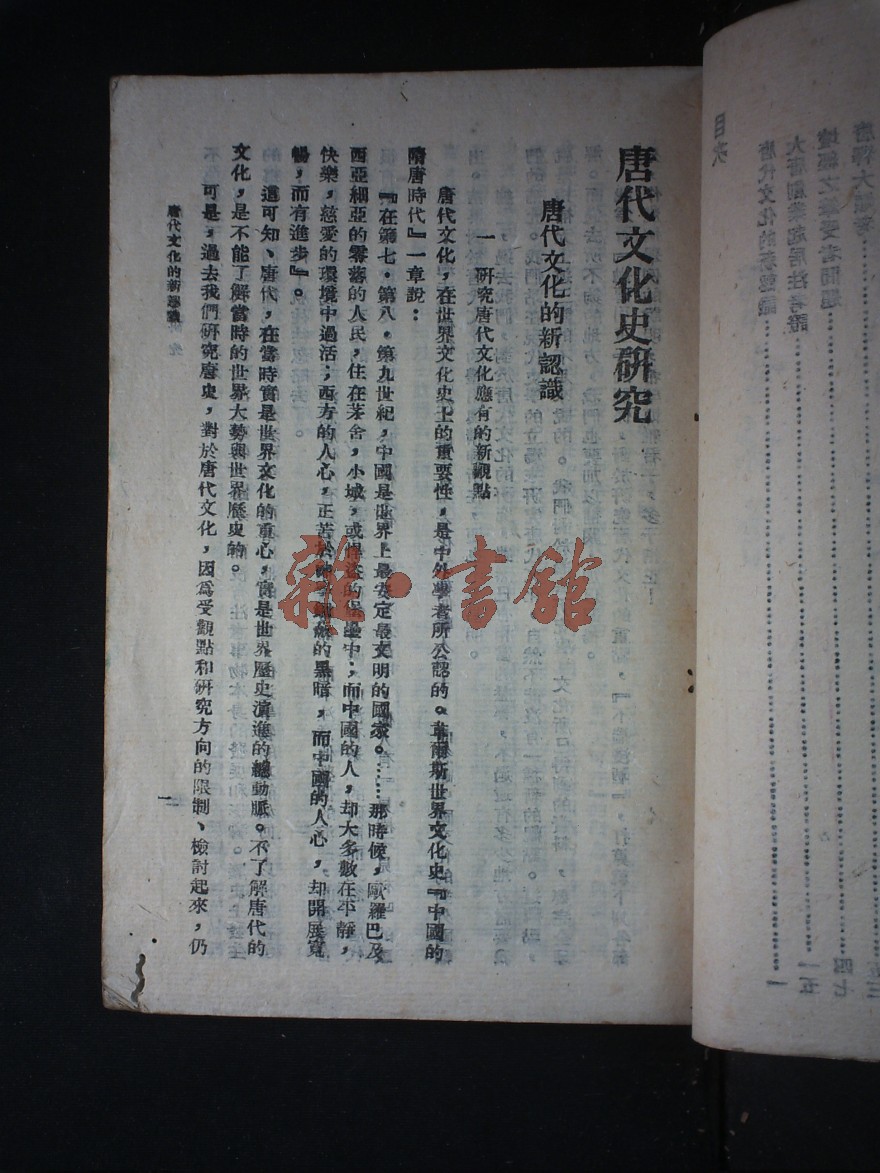 唐代文化史研究
唐代文化的新認識
一 研究唐代文化應有的新觀點
唐代文化，在世界文化史上的重要性，是中外學者所公認的。韋爾斯世界文化史『中國的
隋唐時代』一章說：
『在第七、第八、第九世紀，中國是世界上最安定最文明的國家。……那時候，歐羅巴及
西亞細亞的零落的人民，住在茅舍，小城，或悍盜的保壘中；而中國的人，却大多數在平靜，
快樂，慈愛的環境中過活；西方的人心，正苦於的黑暗，而中國的人心，却開展寬
暢，而有進步』。
這可知、唐代，在當時實是世界文化的重心，實是世界歷史演進的總動脈。不了解唐代的
文化，是不能了解當時的世界大勢與世界歷史的。
可是，過去我們研究唐史，對於唐代文化，因爲受觀點和研究方向的限制、檢討起來，仍
唐代文化的新認識
一
雜·書館
目次
唐代文化的新認識 一
大唐創業起居注考證 一五
壇經之傳受者問題 四七